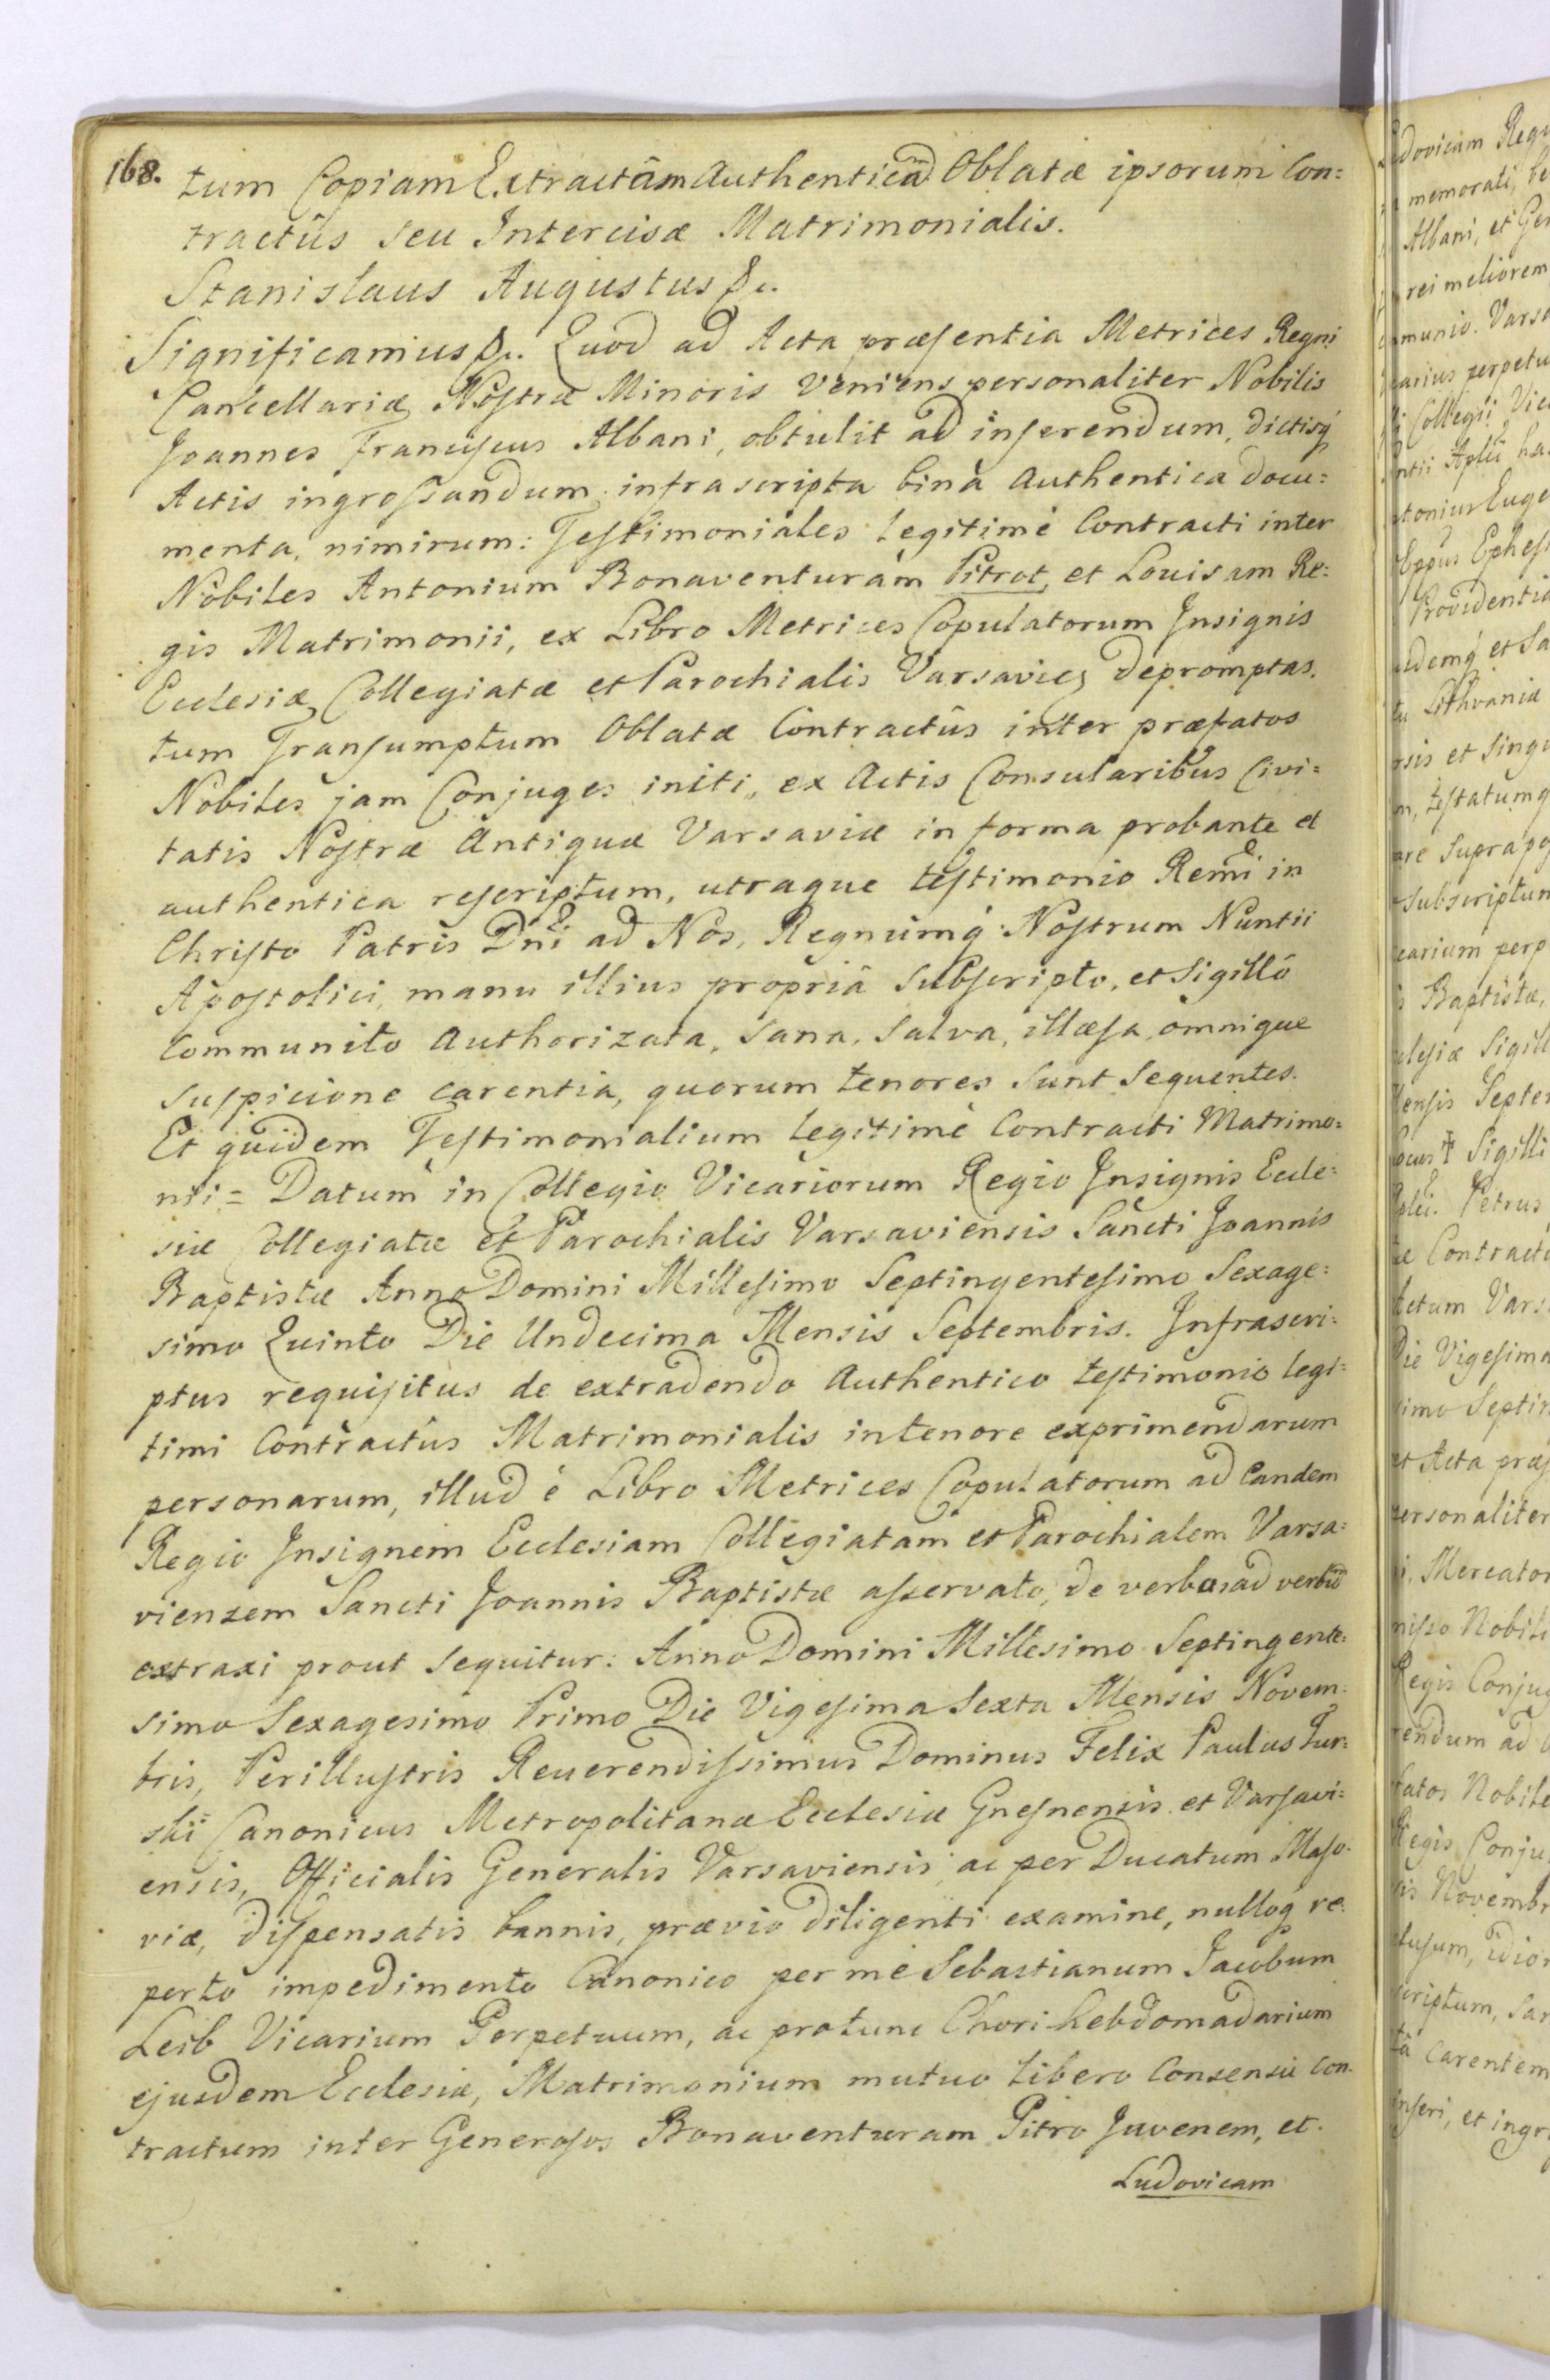 168.
tum Copiam Extractâm Authenticam Oblatæ ipsorum Con=
tractûs seu Intercisæ Matrimonialis.
Stanislaus Augustus &c.
Significamus &c. Quod ad Acta præsentia Metrices Regni
Cancellariæ Nostræ Minoris veniens personaliter Nobilis
Joannes Franciscus Albani, obtulit ad inserendum, dictisq́
Actis ingrossandum infrascripta bina authentica docu=
menta, nimirum: Testimoniales legitimè Contracti inter
Nobiles Antonium Bonaventuram Pitrot, et Louisam Re=
gis Matrimonii, ex Libro Metrices Copulatorum Insignis
Ecclesiæ Collegiatæ et Parochialis Varsaviẽ depromptas.
tum Transumptum Oblatæ Contractûs inter præfatos
Nobiles jam Conjuges initi, ex Actis Consularibus Civi=
tatis Nostræ Antiquæ Varsaviæ in forma probante et
authentica rescriptum, utraque testimonio Remi in
Christo Patris Dni ad Nos, Regnumq́ Nostrum Nuntii
Apostolici, manu illius propriâ subscripto, et Sigillô
Communito Authorizata, sana, salva, illæsa, omnique
suspicione carentia, quorum tenores sunt sequentes.
Et quidem Testimonialium legitimè Contracti Matrimo=
nii = Datum in Collegio Vicariorum Regio Insignis Eccle=
siæ Collegiatæ et Parochialis Varsaviensis Sancti Joannis
Baptistæ Anno Domini Millesimo Septingentesimo Sexage=
simo Quinto Die Undecima Mensis Septembris. Infrascri=
ptus requisitus de extradendo Authentico testimonio legi=
timi Contractûs Matrimonialis in tenore exprimendarum
personarum, illud è Libro Metrices Copulatorum ad eandem
Regio Insignem Ecclesiam Collegiatam et Parochialem Varsa=
viensem Sancti Joannis Baptistæ asservato, de verbo ad verbum
extraxi prout sequitur: Anno Domini Millesimo Septingente=
simo Sexagesimo Primo Die Vigesima Sexta Mensis Novem=
bris, Perillustris Reverendissimus Dominus Felix Paulus Tur=
ski Canonicus Metropolitanæ Ecclesiæ Gnesnensis et Varsavi=
ensis, Officialis Generalis Varsaviensis, ac per Ducatum Maso=
viæ, dispensatis bannis, prævio diligenti examine, nulloq́ re=
perto impedimento Canonico per me Sebastianum Jacobum
Leib Vicarium Perpetuum, ac protunc Chori hebdomadarium
ejusdem Ecclesiæ, Matrimonium mutuo libero Consensu con=
tractum inter Generosos Bonaventuram Pitro Juvenem, et
Ludovicam